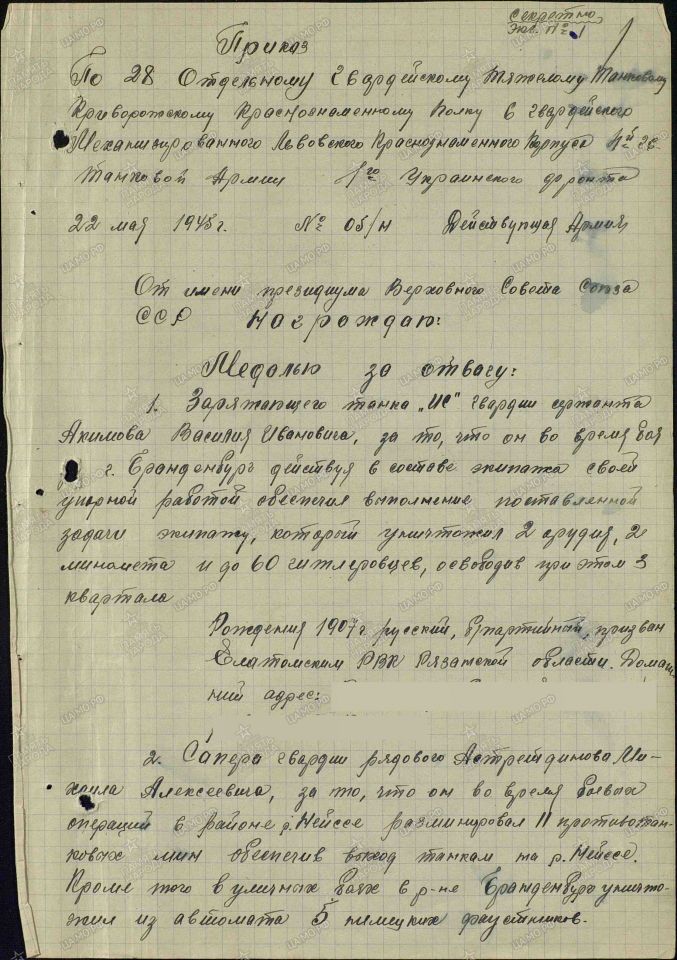 Секретно
Экз. № 1
Приказ
По 28 Отдельному Гвардейскому Тяжелому Танковому
Криворожскому Краснознаменному Полку 6 Гвардейского
Механизированного Львовского Краснознаменного Корпуса 4й Гв.
Танковой Армии 1го Украинского фронта
22 мая 1945г. № 05/н Действующая Армия
От имени президиума Верховного Совета Союза
ССР Награждаю:
Медалью за отвагу:
1. Заряжающего танка „ИС" гвардии сержанта
Акимова Василия Ивановича, за то, что он во время боя
г. Бранденбург действуя в составе экипажа своей
упорной работой обеспечил выполнение поставленной
задачи экипажу, который уничтожил 2 орудия, 2
миномета и до 60 гитлеровцев, освободив при этом 3
квартала
Рождения 1907г русский, б/партийный, призван
Елатомским РВК Рязанской области. Домаш-
ний адрес:
2. Сапера гвардии рядового Астрейдинова Ми-
хаила Алексеевича, за то, что он во время боевых
операций в районе р. Нейссе разминировал 11 противотан-
ковых мин обеспечив выход танкам на р. Нейссе.
Кроме того в уличных боях в р-не Бранденбург уничто-
жил из автомата 5 немецких фаустников.